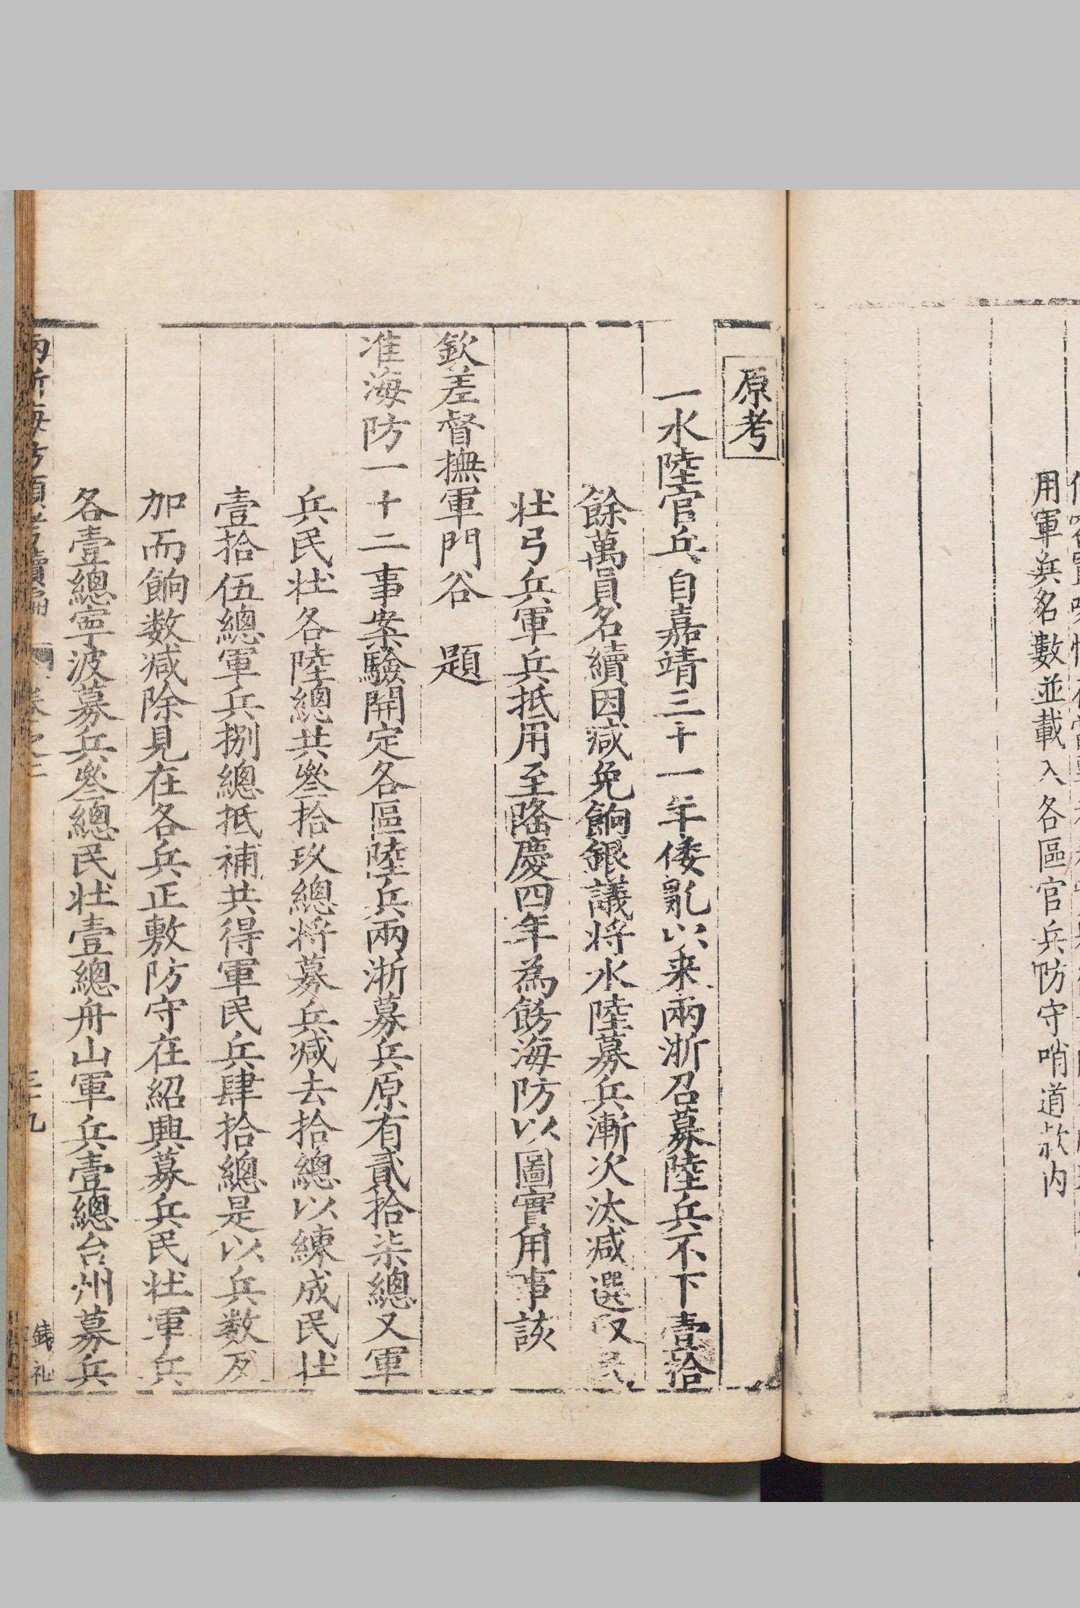 用軍兵名數並載入各區官兵防守哨道款内
原考
一水陸官兵自嘉靖三十一年倭亂以来兩浙召募陸兵不下壹拾
餘萬員名續因減免餉銀議将水陸募兵漸次汰減選取民
壮弓兵軍兵抵用至隆慶四年為飭海防以圖實用事該
欽差督撫軍門谷 題
准海防一十二事案驗開定各區陸兵兩浙募兵原有貳拾柒總又軍
兵民壮各陸總共叄拾玖總将募兵減去拾總以練成民壮
壹拾伍總軍兵捌總抵補共得軍民兵肆拾總是以兵数反
加而餉数減除見在各兵正敷防守在紹興募兵民壮軍兵
各壹總寧波募兵叄總民壮壹總舟山軍兵壹總台州募兵
兩浙海防類考續編 卷之二 三十九 錢礼